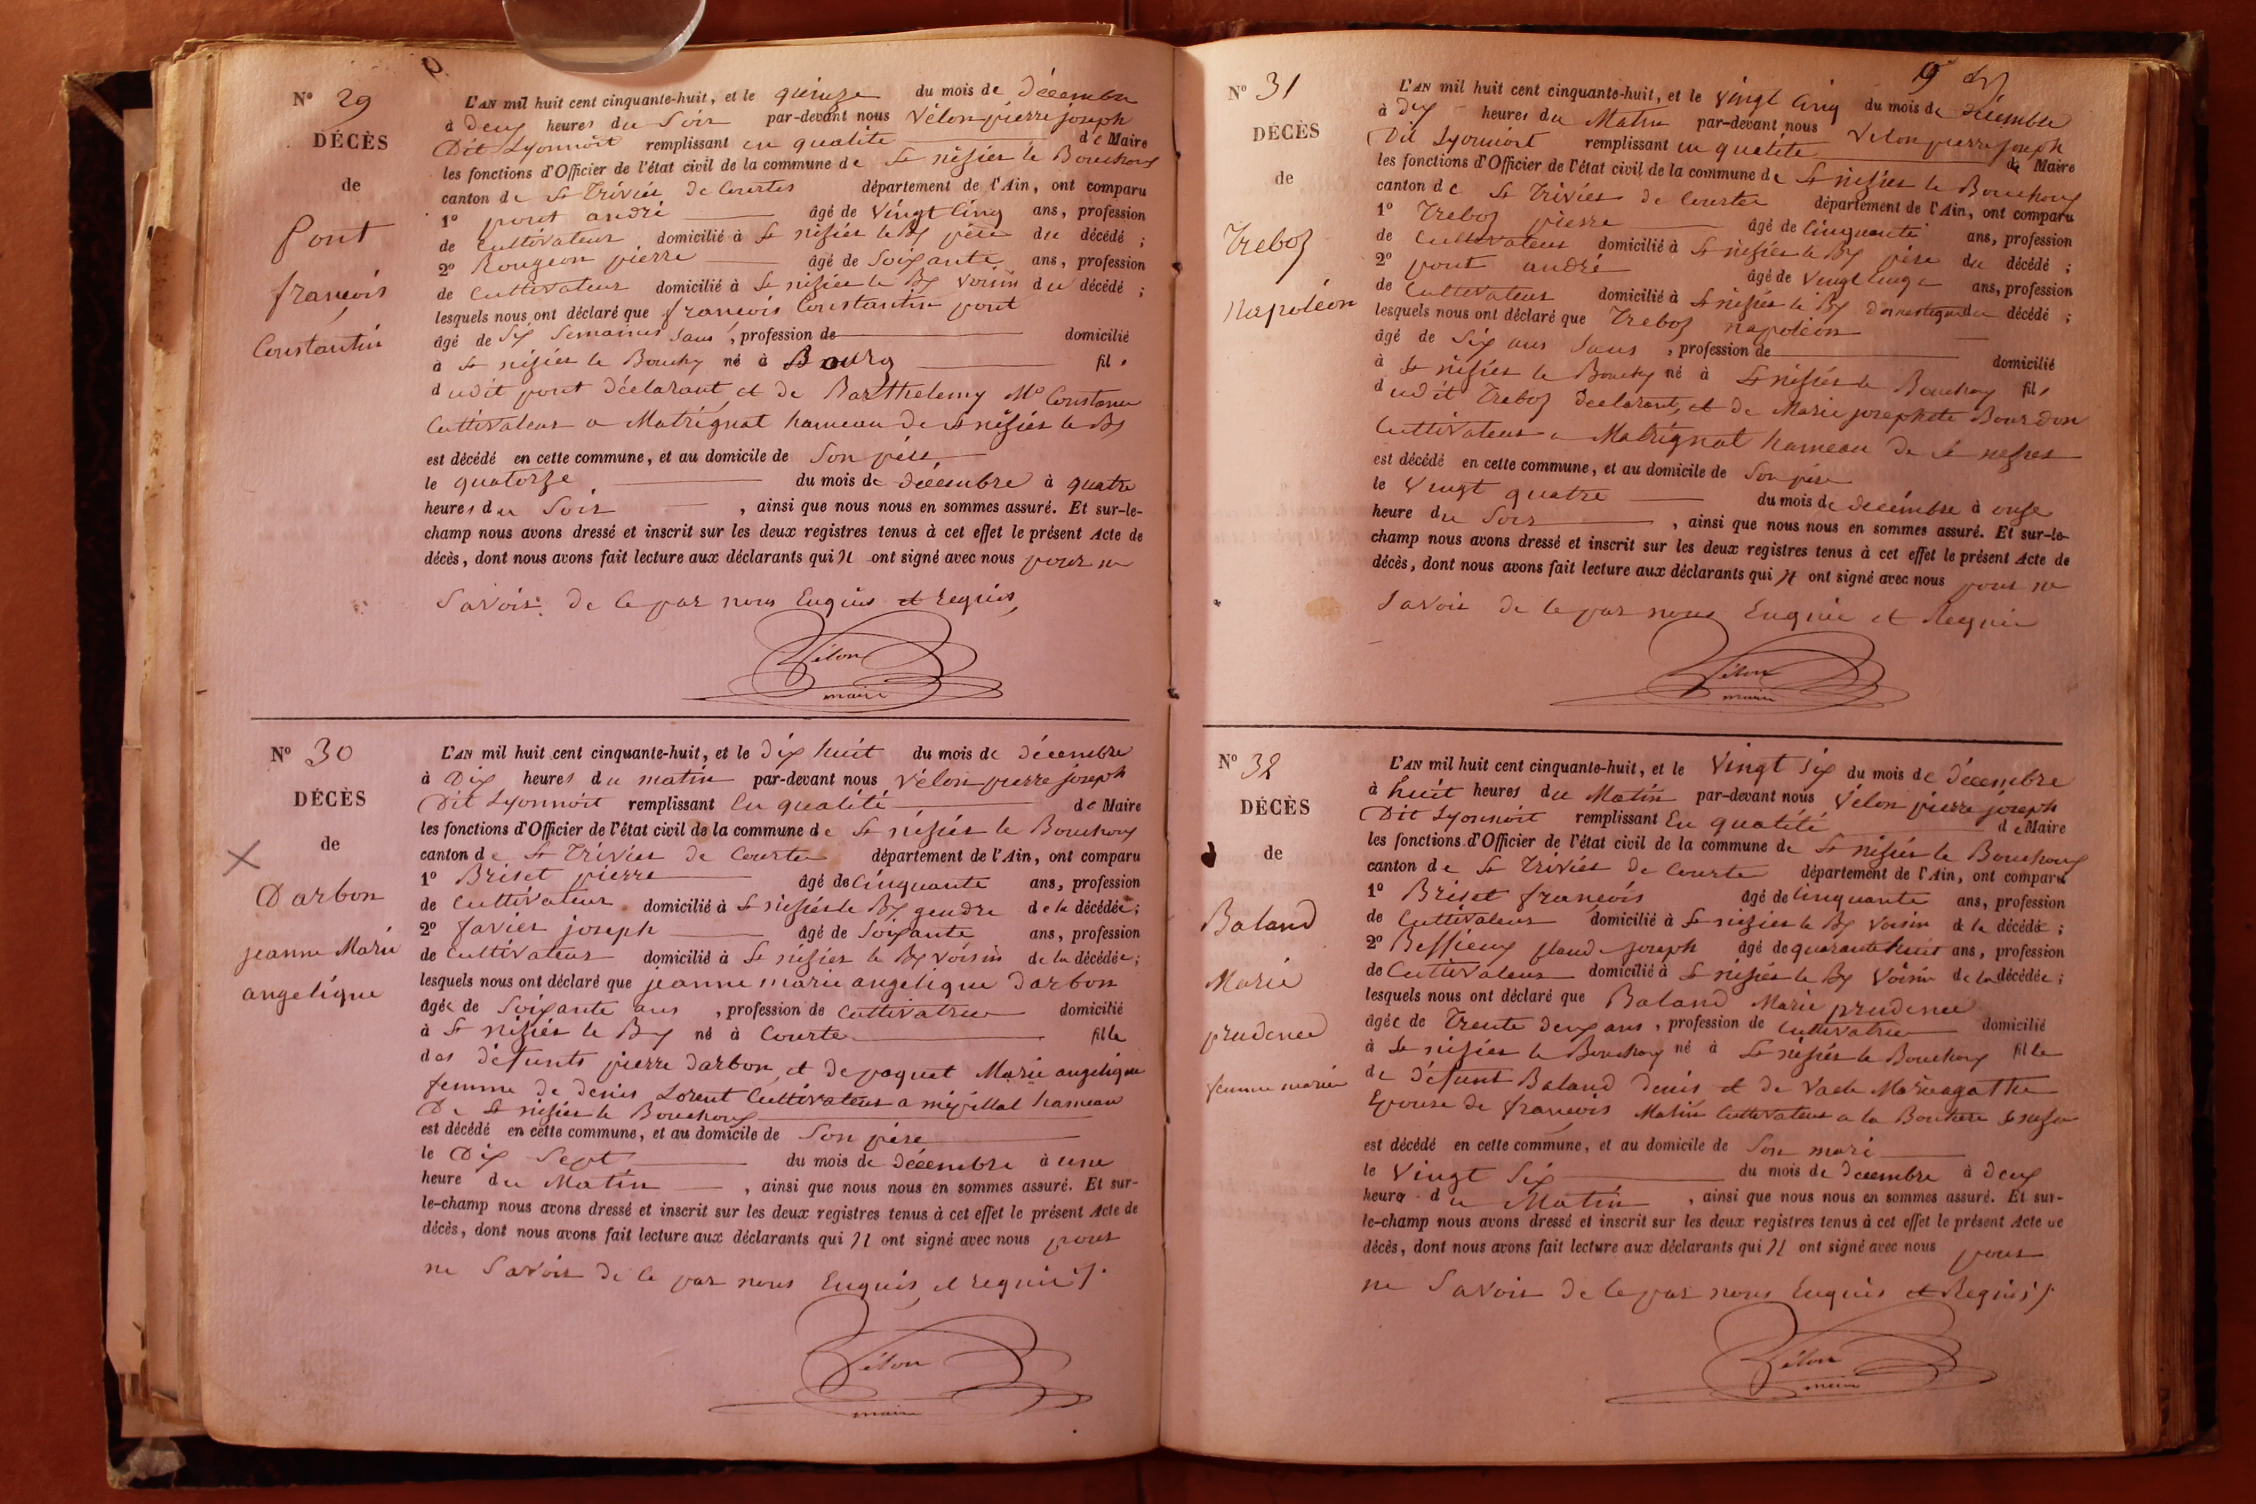 N° 29
DÉCÈS
de
pont
françois
Constantin
L'AN mil huit cent cinquante-huit, et le quinze du mois de décembre
à deux heures du Soir par-devant nous Vélon pierre joseph
Dit Lyonnoit remplissant en qualité de Maire
les fonctions d'Officier de l'état civil de la commune de St nizier le Bouchoux
canton de St Trivier de Courtes département de l'Ain, ont comparu
1° pont andré âgé de Vingt Cinq ans, profession
de Cultivateur domicilié à St nizier le Bx père du décédé ;
2° Rougeon pierre âgé de Soixante ans, profession
de Cultivateur domicilié à St nizier le Bx Voisin du décédé ;
lesquels nous ont déclaré que françois Constantin pont
âgé de Six Semaines Sans, profession de domicilié
à St nizier le Bouchx né à Bourg fils
dudit pont déclarant, et de Barthelemy Me Constance
Cultivateur a Matrignat hameau de St nizier le Bx
est décédé en cette commune, et au domicile de Son père
le quatorze du mois de décembre à quatre
heures du Soir, ainsi que nous nous en sommes assuré. Et sur-le-
champ nous avons dressé et inscrit sur les deux registres tenus à cet effet le présent Acte de
décès, dont nous avons fait lecture aux déclarants qui N ont signé avec nous pour ne
Savoir de ce par nous Enquis et requis
Vélon
maire
N° 30
DÉCÈS
de
Darbon
jeanne Marie
angelique
L'AN mil huit cent cinquante-huit, et le dix huit du mois de décembre
à Dix heures du matin par-devant nous Vélon pierre joseph
Dit Lyonnoit remplissant En qualité de Maire
les fonctions d'Officier de l'état civil de la commune de St nizier le Bouchoux
canton de St Trivier de Courtes département de l'Ain, ont comparu
1° Briset pierre âgé de Cinquante ans, profession
de Cultivateur domicilié à St nizier le Bx gendre de la décédée ;
2° favier joseph âgé de Soixante ans, profession
de Cultivateur domicilié à St nizier le Bx Voisin de la décédée ;
lesquels nous ont déclaré que jeanne marie angelique Darbon
âgée de Soixante ans, profession de Cultivatrice domicilié
à St nizier le Bx né à Courtes fille
des défunts pierre darbon et de paquet Marie angelique
femme de denis Lorent Cultivateur a mépillat hameau
De St nizier le Bouchoux
est décédé en cette commune, et au domicile de Son père
le Dix Sept du mois de décembre à une
heure du Matin, ainsi que nous nous en sommes assuré. Et sur-
le-champ nous avons dressé et inscrit sur les deux registres tenus à cet effet le présent Acte de
décès, dont nous avons fait lecture aux déclarants qui N ont signé avec nous pour
ne Savoir de ce par nous Enquis, et requis
Vélon
maire
N° 31
DÉCÈS
de
Treboz
Napoléon
L'AN mil huit cent cinquante-huit, et le Vingt Cinq du mois de décembre
à dix heures du Matin par-devant nous Vélon pierre joseph
Dit Lyonnoit remplissant en qualité de Maire
les fonctions d'Officier de l'état civil de la commune de St nizier le Bouchoux
canton de St Trivier de Courtes département de l'Ain, ont comparu
1° Treboz pierre âgé de Cinquante ans, profession
de Cultivateur domicilié à St nizier le Bx père du décédé ;
2° pont andré âgé de Vingt Cinq ans, profession
de Cultivateur domicilié à St nizier le Bx domestique du décédé ;
lesquels nous ont déclaré que Treboz napoléon
âgé de Six ans Sans, profession de domicilié
à St nizier le Bouchx né à St nizier le Bouchoux fils
dudit Treboz déclarant, et de Marie josephete Bourdon
Cultivateur a Matrignat hameau de St nizier
est décédé en cette commune, et au domicile de Son père
le Vingt quatre du mois de décembre à onze
heure du Soir, ainsi que nous nous en sommes assuré. Et sur-le-
champ nous avons dressé et inscrit sur les deux registres tenus à cet effet le présent Acte de
décès, dont nous avons fait lecture aux déclarants qui N ont signé avec nous pour ne
Savoir de ce par nous Enquis et Requis
Vélon
maire
N° 32
DÉCÈS
de
Baland
Marie
prudence
femme marin
L'AN mil huit cent cinquante-huit, et le Vingt Six du mois de décembre
à huit heures du Matin par-devant nous Vélon pierre joseph
Dit Lyonnoit remplissant En qualité de Maire
les fonctions d'Officier de l'état civil de la commune de St nizier le Bouchoux
canton de St Trivier de Courtes département de l'Ain, ont comparu
1° Briset françois âgé de Cinquante ans, profession
de Cultivateur domicilié à St nizier le Bx Voisin de la décédé ;
2° Beffieux flaude joseph âgé de quarante huit ans, profession
de Cultivateur domicilié à St nizier le Bx Voisin de la décédée ;
lesquels nous ont déclaré que Baland Marie prudence
âgée de Trente deux ans, profession de Cultivatrice domicilié
à St nizier le Bouchoux né à St nizier le Bouchoux fille
de défunt Baland denis et de Vacle Marie agathe
Epouse de françois Marin Cultivateur a la Bouchere St nizier
est décédé en cette commune, et au domicile de Son mari
le Vingt Six du mois de décembre à deux
heure du Matin, ainsi que nous nous en sommes assuré. Et sur-
le-champ nous avons dressé et inscrit sur les deux registres tenus à cet effet le présent Acte de
décès, dont nous avons fait lecture aux déclarants qui N ont signé avec nous pour
ne Savoir de ce par nous Enquis et Requis
Vélon
maire